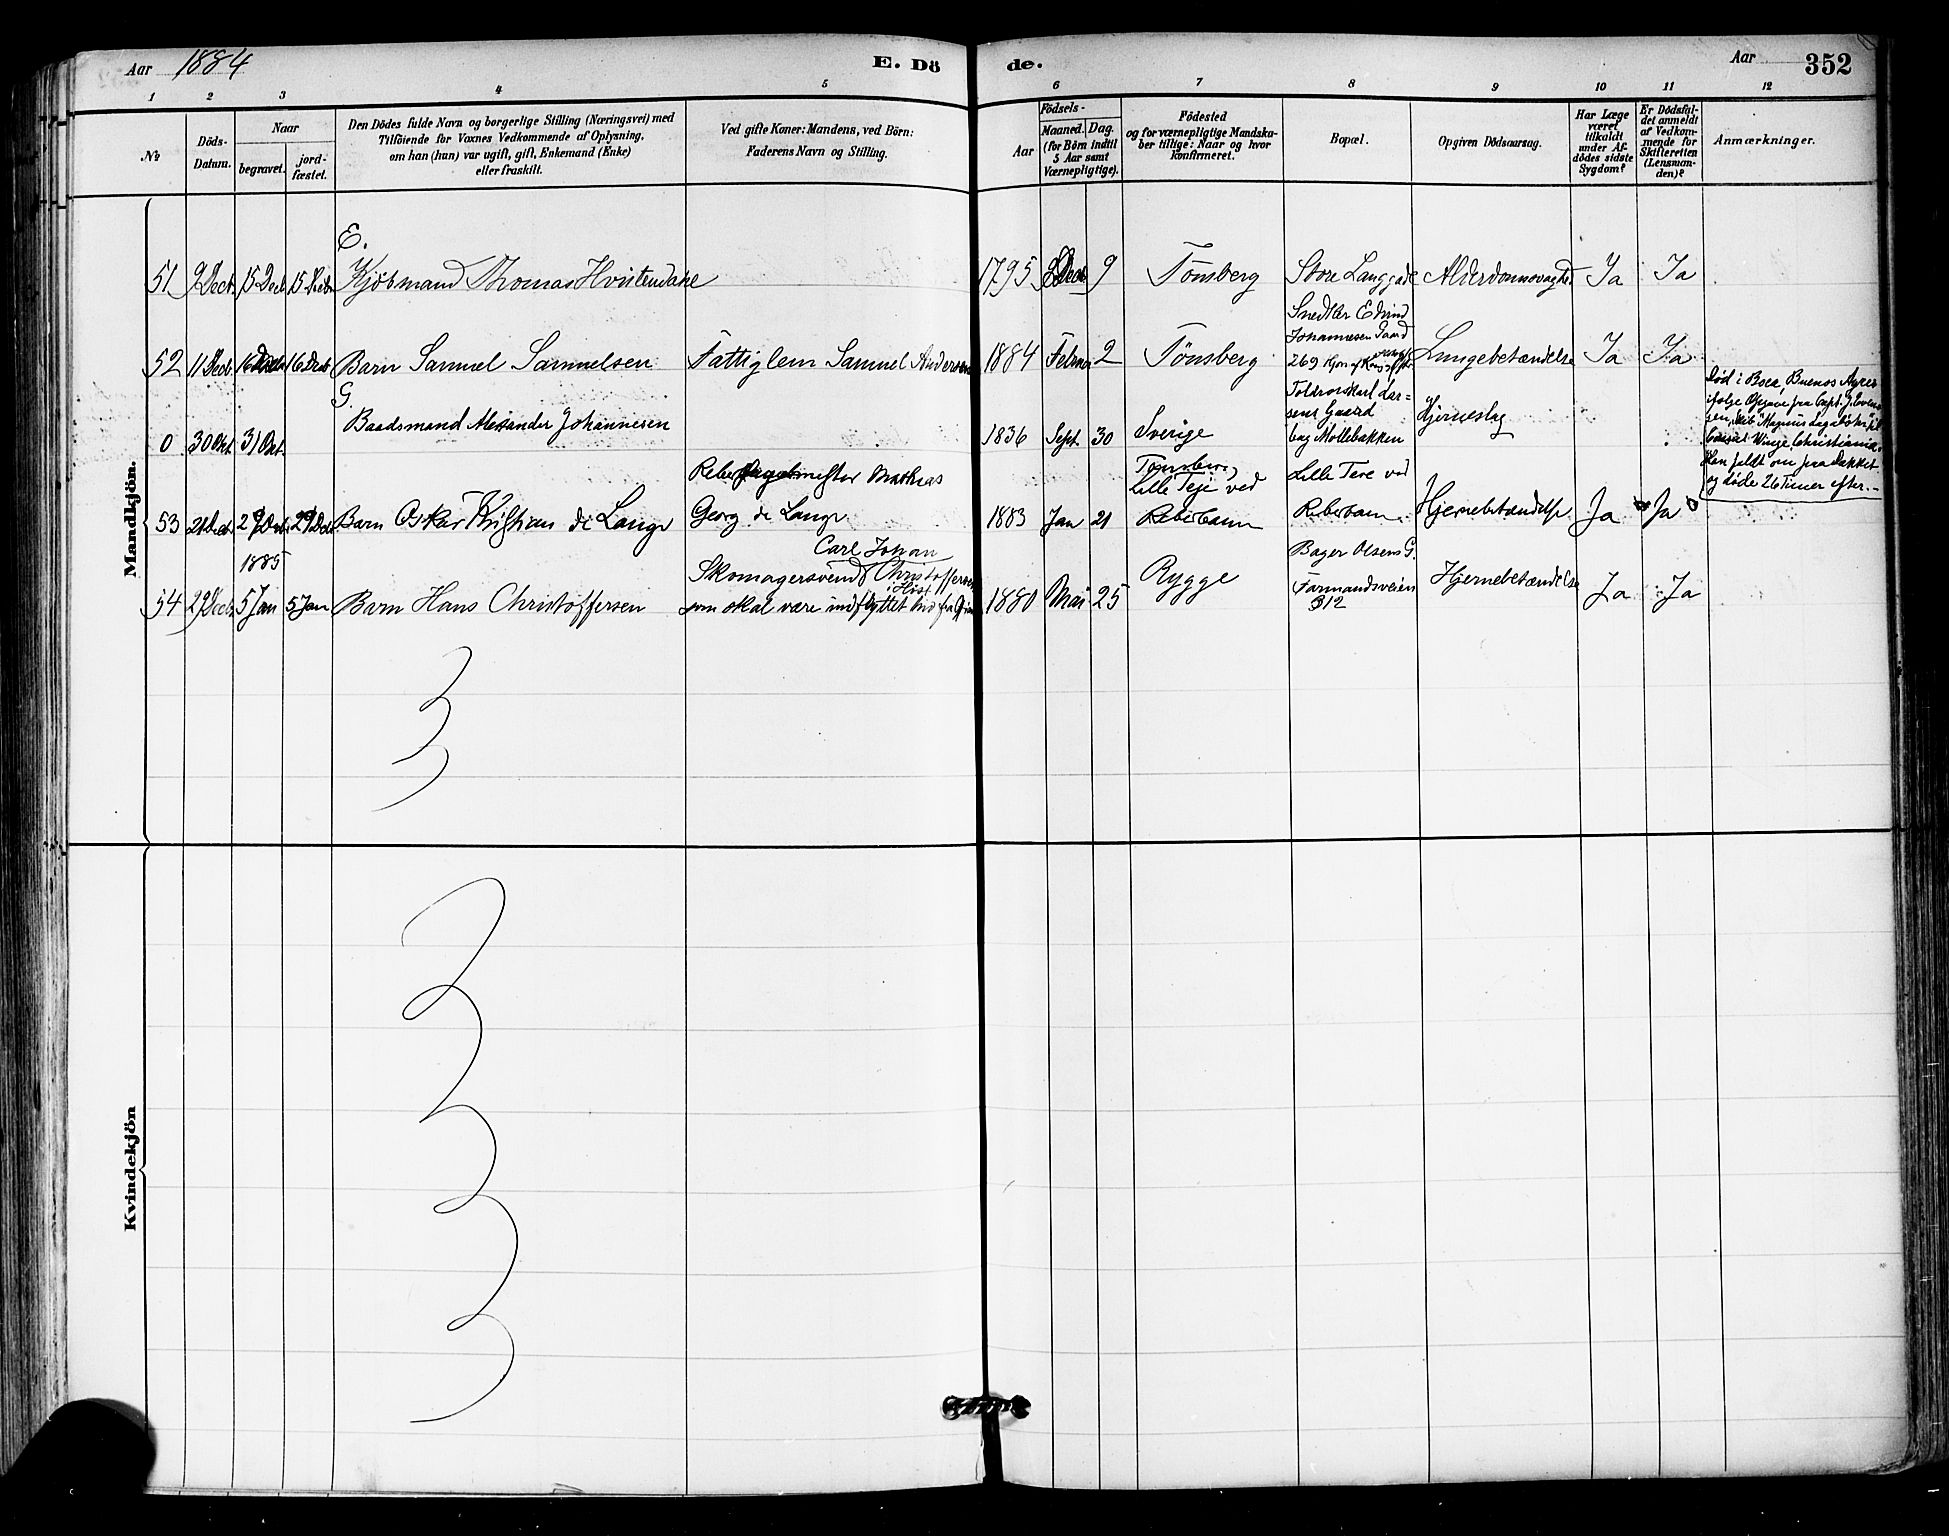 Aar 1884 E. Dö de. Aar 352
1 2 3 4 5 6 7 8 9 10 11 12
No
Döds-Datum.
Naar
begravet.
jord-fæstet.
Den Dödes fulde Navn og borgerlige Stilling (Næringsvei) med
Tilföiende for Voxnes Vedkommende af Oplysning,
om han (hun) var ugift, gift, Enkemand (Enke)
eller fraskilt.
Ved gifte Koner: Mandens, ved Börn:
Faderens Navn og Stilling.
Födsels-
Aar
Maaned. Dag.
(for Börn indtil
5 Aar samt
Værnepligtige).
Födested
og for værnepligtige Mandska-
ber tillige: Naar og hvor
konfirmeret.
Bopæl.
Opgiven Dödsaarsag.
Har Læge
været
tilkaldt
under Af-
dödes sidste
Sygdom?
Er Dödsfal-
det anmeldt
af Vedkom-
mende for
Skifteretten
(Lensman-
den)?
Anmærkninger.
Mandkjön.
E.
51 9 Decb. 15 Decb 15 Decb Kjöbmand Thomas Hvistendahl 1795 Decb 9 Tönsberg Store Langgade Ja Ja
Snedker Edvind
Johannesen Gaard
52 11 Decb. 16 Decb 16 Decb Barn Samuel Samuelsen Fattiglem Samuel Andersen 1884 Februar 2 Tönsberg 269 Lungebetændelse Ja Ja
G.
Baadsmand Alexander Johannesen
0 30 Okt 31 Okt. 1836 Sept. 30 Sverige
sens Gaard
bag Mollebakken
Hjerneslag
Död i Boca, Buenos Ayres
ifölge Opgave fra Capt.
Christiania.
Han faldt om paa Dækket
og döde 26 Timer efter.-
Mathias
53 21 Decb. 29 Decb. 29 Decb Barn Oskar Kristian de Lange Georg de Lange 1883 Jan 21
Tönsberg,
Lille Teje ved
Reberbanen
Lille Teie ved
Reberbanen
Hjernebetændelse Ja Ja
1885
Carl Johan
Skomagersvend Christoffersen
54 29 Decb. 5 Jan 5 Jan Barn Hans Christoffersen som skal være indflyttet hid fra 1880 Mai 25 Rygge
Bager Olsens G.
Farmandsveien
312
Hjernebetændelse Ja Ja
Kvindekjön